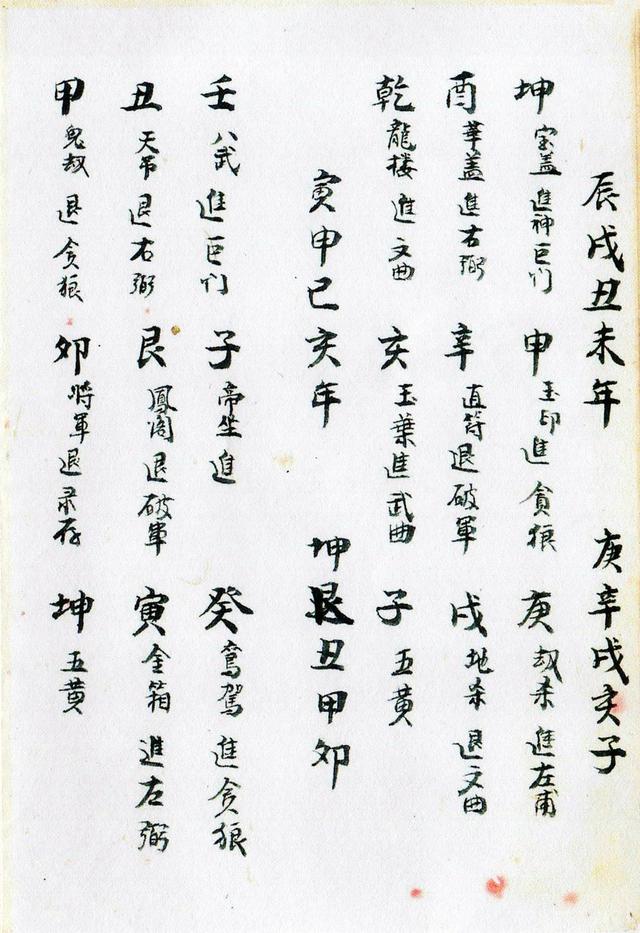 辰戌丑未年 庚辛戌亥子
坤 宝盖進神巨门 申 玉印進贪狼 庚 刼杀進左甫
酉 華盖進右弼 辛 直符退破軍 戌 地杀退文曲
乾 龍楼進文曲 亥 玉葉進武曲 子 五黄
寅申巳亥年 坤艮丑甲卯
壬 八武進巨门 子 帝坐進 癸 鸾駕進贪狼
丑 天吊退右弼 艮 鳳阁退破軍 寅 金箱進左弼
甲 鬼刼退贪狼 卯 将軍退录存 坤 五黄